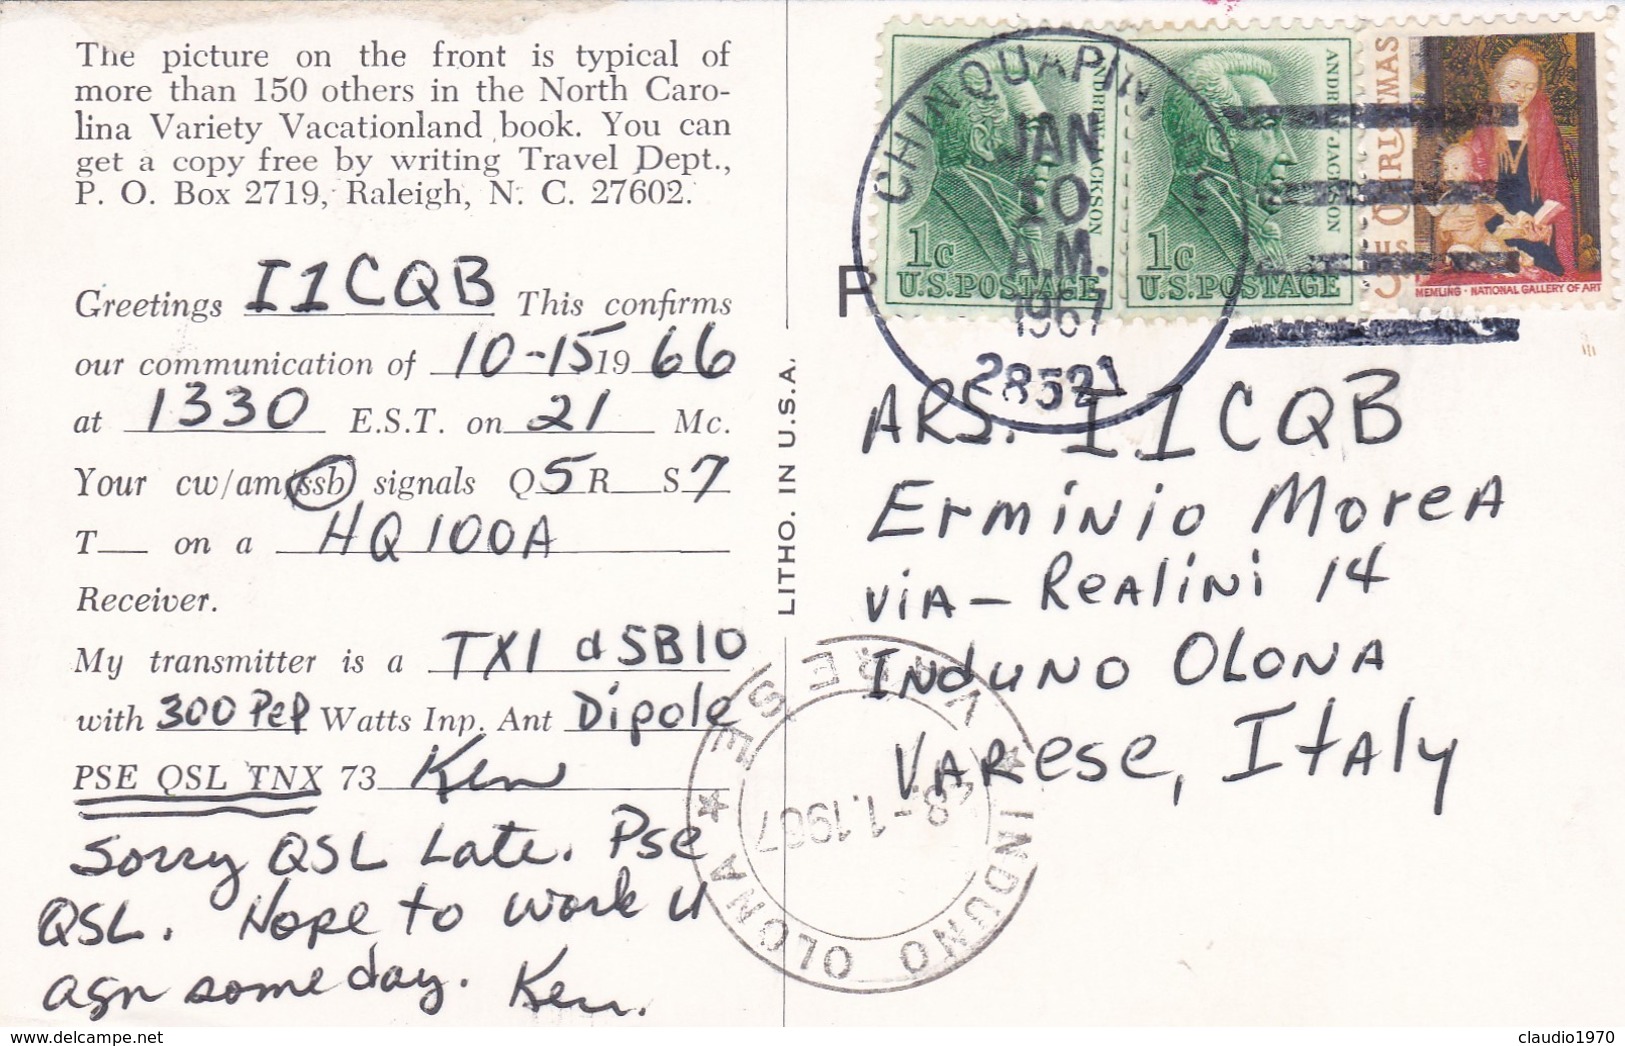 The picture on the front is typical of
more than 150 others in the North Caro-
lina Variety Vacationland book. You can
get a copy free by writing Travel Dept.,
P. O. Box 2719, Raleigh, N. C. 27602.
Greetings I1CQB This confirms
our communication of 10-15 19 66
at 1330 E.S.T. on 21 Mc.
Your cw/am/ssb signals Q 5 R S 7
T on a HQ100A
Receiver.
My transmitter is a TX1 & SB10
with 300 PeP Watts Inp. Ant Dipole
PSE QSL TNX 73 Ken
Sorry QSL Late. Pse
QSL. Hope to work u
agn someday. Ken.
LITHO. IN U.S.A.
P
CHINQUAPIN, N.C.
JAN
10
A.M.
1967
28521
ANDREW JACKSON
1c
U.S. POSTAGE
ANDREW JACKSON
1c
U.S. POSTAGE
CHRISTMAS
5c U.S.
MEMLING · NATIONAL GALLERY OF ART
ARS. I1CQB
Erminio Morea
via - Realini 14
Induno Olona
Varese, Italy
INDUNO OLONA
VARESE
-1.1967
claudio1970